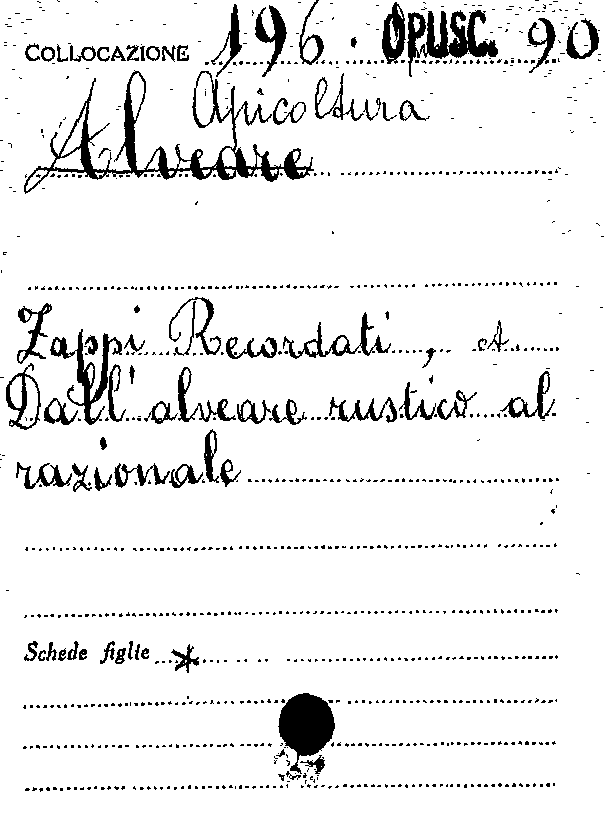 COLLOCAZIONE 196. OPUSC. 90
Apicoltura
Alveare
Zappi Recordati, A.
Dall'alveare rustico al
razionale
Schede figlie *